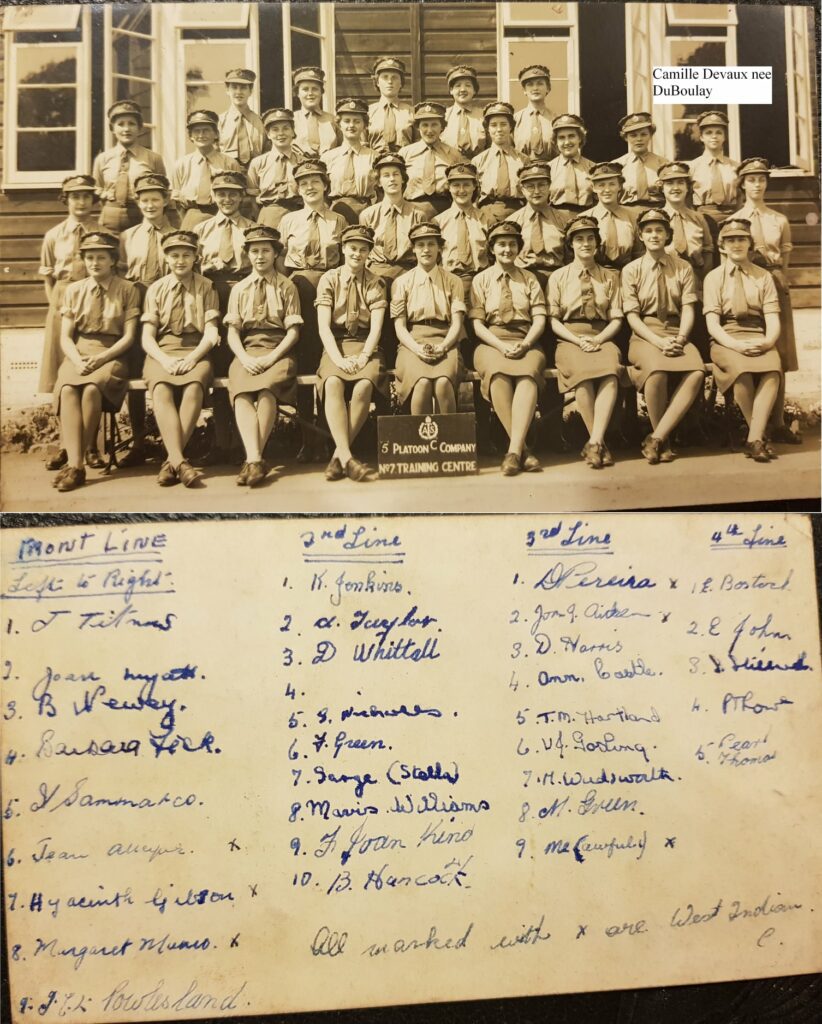 Camille Devaux nee
DuBoulay
ATS
5 PLATOON C COMPANY
No7 TRAINING CENTRE
FRONT LINE
Left to Right.
1. J Titmus
2. Joan Myatt.
3. B Newey.
4. Barbara Feck.
5. Sammarco.
6. Jean x
7. Hyacinth Gibson x
8. Margaret Munro. x
9. Powlesland.
2nd Line
1. K. Jenkins.
2. A. Taylor.
3. D Whittall
4.
5. S. Nicholls.
6. F. Green.
7. Sarge (Stella)
8. Mavis Williams
9. F. Joan Kind
10. B. Hancock.
3rd Line
1. D Pereira x
2. Aitken x
3. D. Harris
4. Ann. Castle.
5. T.M. Hartland
6. V.J. Gosling.
7. M. Wudsworth.
8. M. Green.
9. Me (awful) x
4th Line
1. E. Bostock
2. E John.
3.
4. P Howe
5. Pearl
Thomas
All marked with x are West Indian.
C.